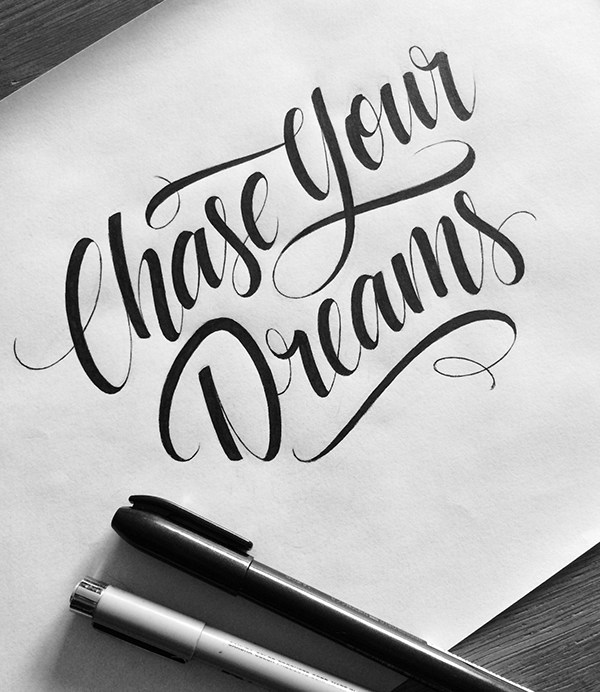 Chase Your
Dreams